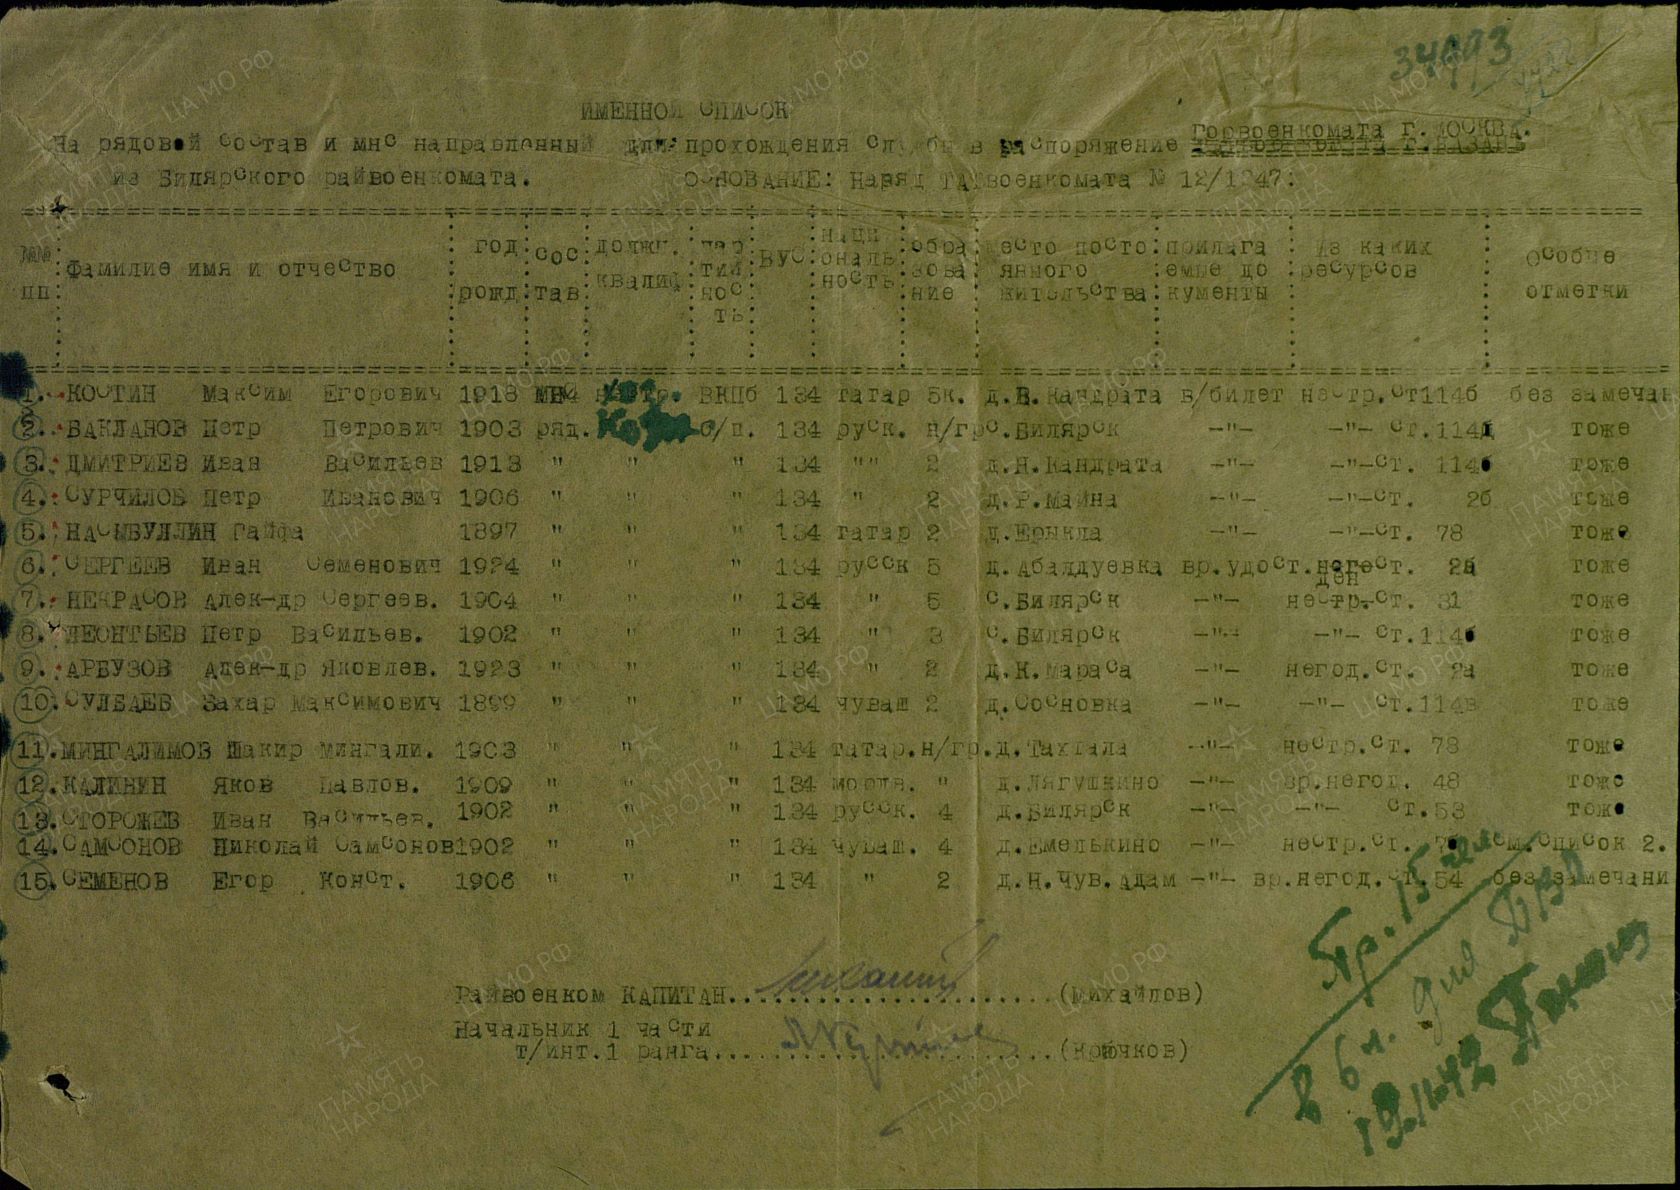 34993
ИМЕННОЙ СПИСОК
На рядовой состав и мнс направленный для прохождения службы в распоряжение Горвоенкомата г. МОСКВА.
из Билярского райвоенкомата. ОСНОВАНИЕ: Наряд ТАТвоенкомата № 12/1247:
№№ пп Фамилие имя и отчество год рожд сос тав должн. квалиф пар тий нос ть ВУС наци ональ ность обра зова ние место посто янного жительства прилага емые до кументы Из каких ресурсов Особые отметки
1. КОСТИН Максим Егорович 1918 ВКПб 134 татар 5к. д.В.Кандрата в/билет нестр.ст114б без замечан
2. БАКЛАНОВ Петр Петрович 1903 ряд. б/п. 134 руск. н/гр с.Билярск -"- -"- ст.114 тоже
3. ДМИТРИЕВ Иван Васильев 1913 " " " 134 "" 2 д.Н.Кандрата -"- -"-ст. 114б тоже
4. СУРЧИЛОВ Петр Иванович 1906 " " " 134 " 2 д.Р.Майна -"- -"-ст. 2б тоже
5. НАСЫБУЛЛИН Гайфа 1897 " " " 134 татар 2 д.Ерыкла -"- -"-ст. 78 тоже
6. СЕРГЕЕВ Иван Семенович 1924 " " " 134 русск 5 д.Абалдуевка вр.удост. ст. тоже
7. НЕКРАСОВ Алек-др Сергеев. 1904 " " " 134 " 5 с.Билярск -"- нестр.ст. 31 тоже
8. ЛЕОНТЬЕВ Петр Васильев. 1902 " " " 134 " 3 с.Билярск -"- -"- ст.114б тоже
9. АРБУЗОВ Алек-др Яковлев. 1923 " " " 134 " 2 д.К.Мараса -"- негод.ст. 2а тоже
10. СУЛБАЕВ Захар Максимович 1899 " " " 134 чуваш 2 д.Сосновка -"- -"- ст.114в тоже
11. МИНГАЛИМОВ Шакир Мингали. 1903 " " " 134 татар.н/гр.д.Тахтала -"- нестр.ст. 78 тоже
12. КАЛИНИН Яков Павлов. 1909 " " " 134 мордв. " д.Лягушкино -"- вр.негод. 48 тоже
13. СТОРОЖЕВ Иван Васильев. 1902 " " " 134 русск. 4 д.Билярск -"- -"- ст.53 тоже
14. САМСОНОВ Николай Самсонов 1902 " " " 134 чуваш. 4 д.Емелькино -"- нестр.ст. см.список 2.
15. СЕМЕНОВ Егор Конст. 1906 " " " 134 " 2 д.Н.Чув.Адам -"- вр.негод.ст.54 без замечани
Райвоенком КАПИТАН........................(Михайлов)
Начальник 1 части
т/инт.1 ранга.........................(Крючков)